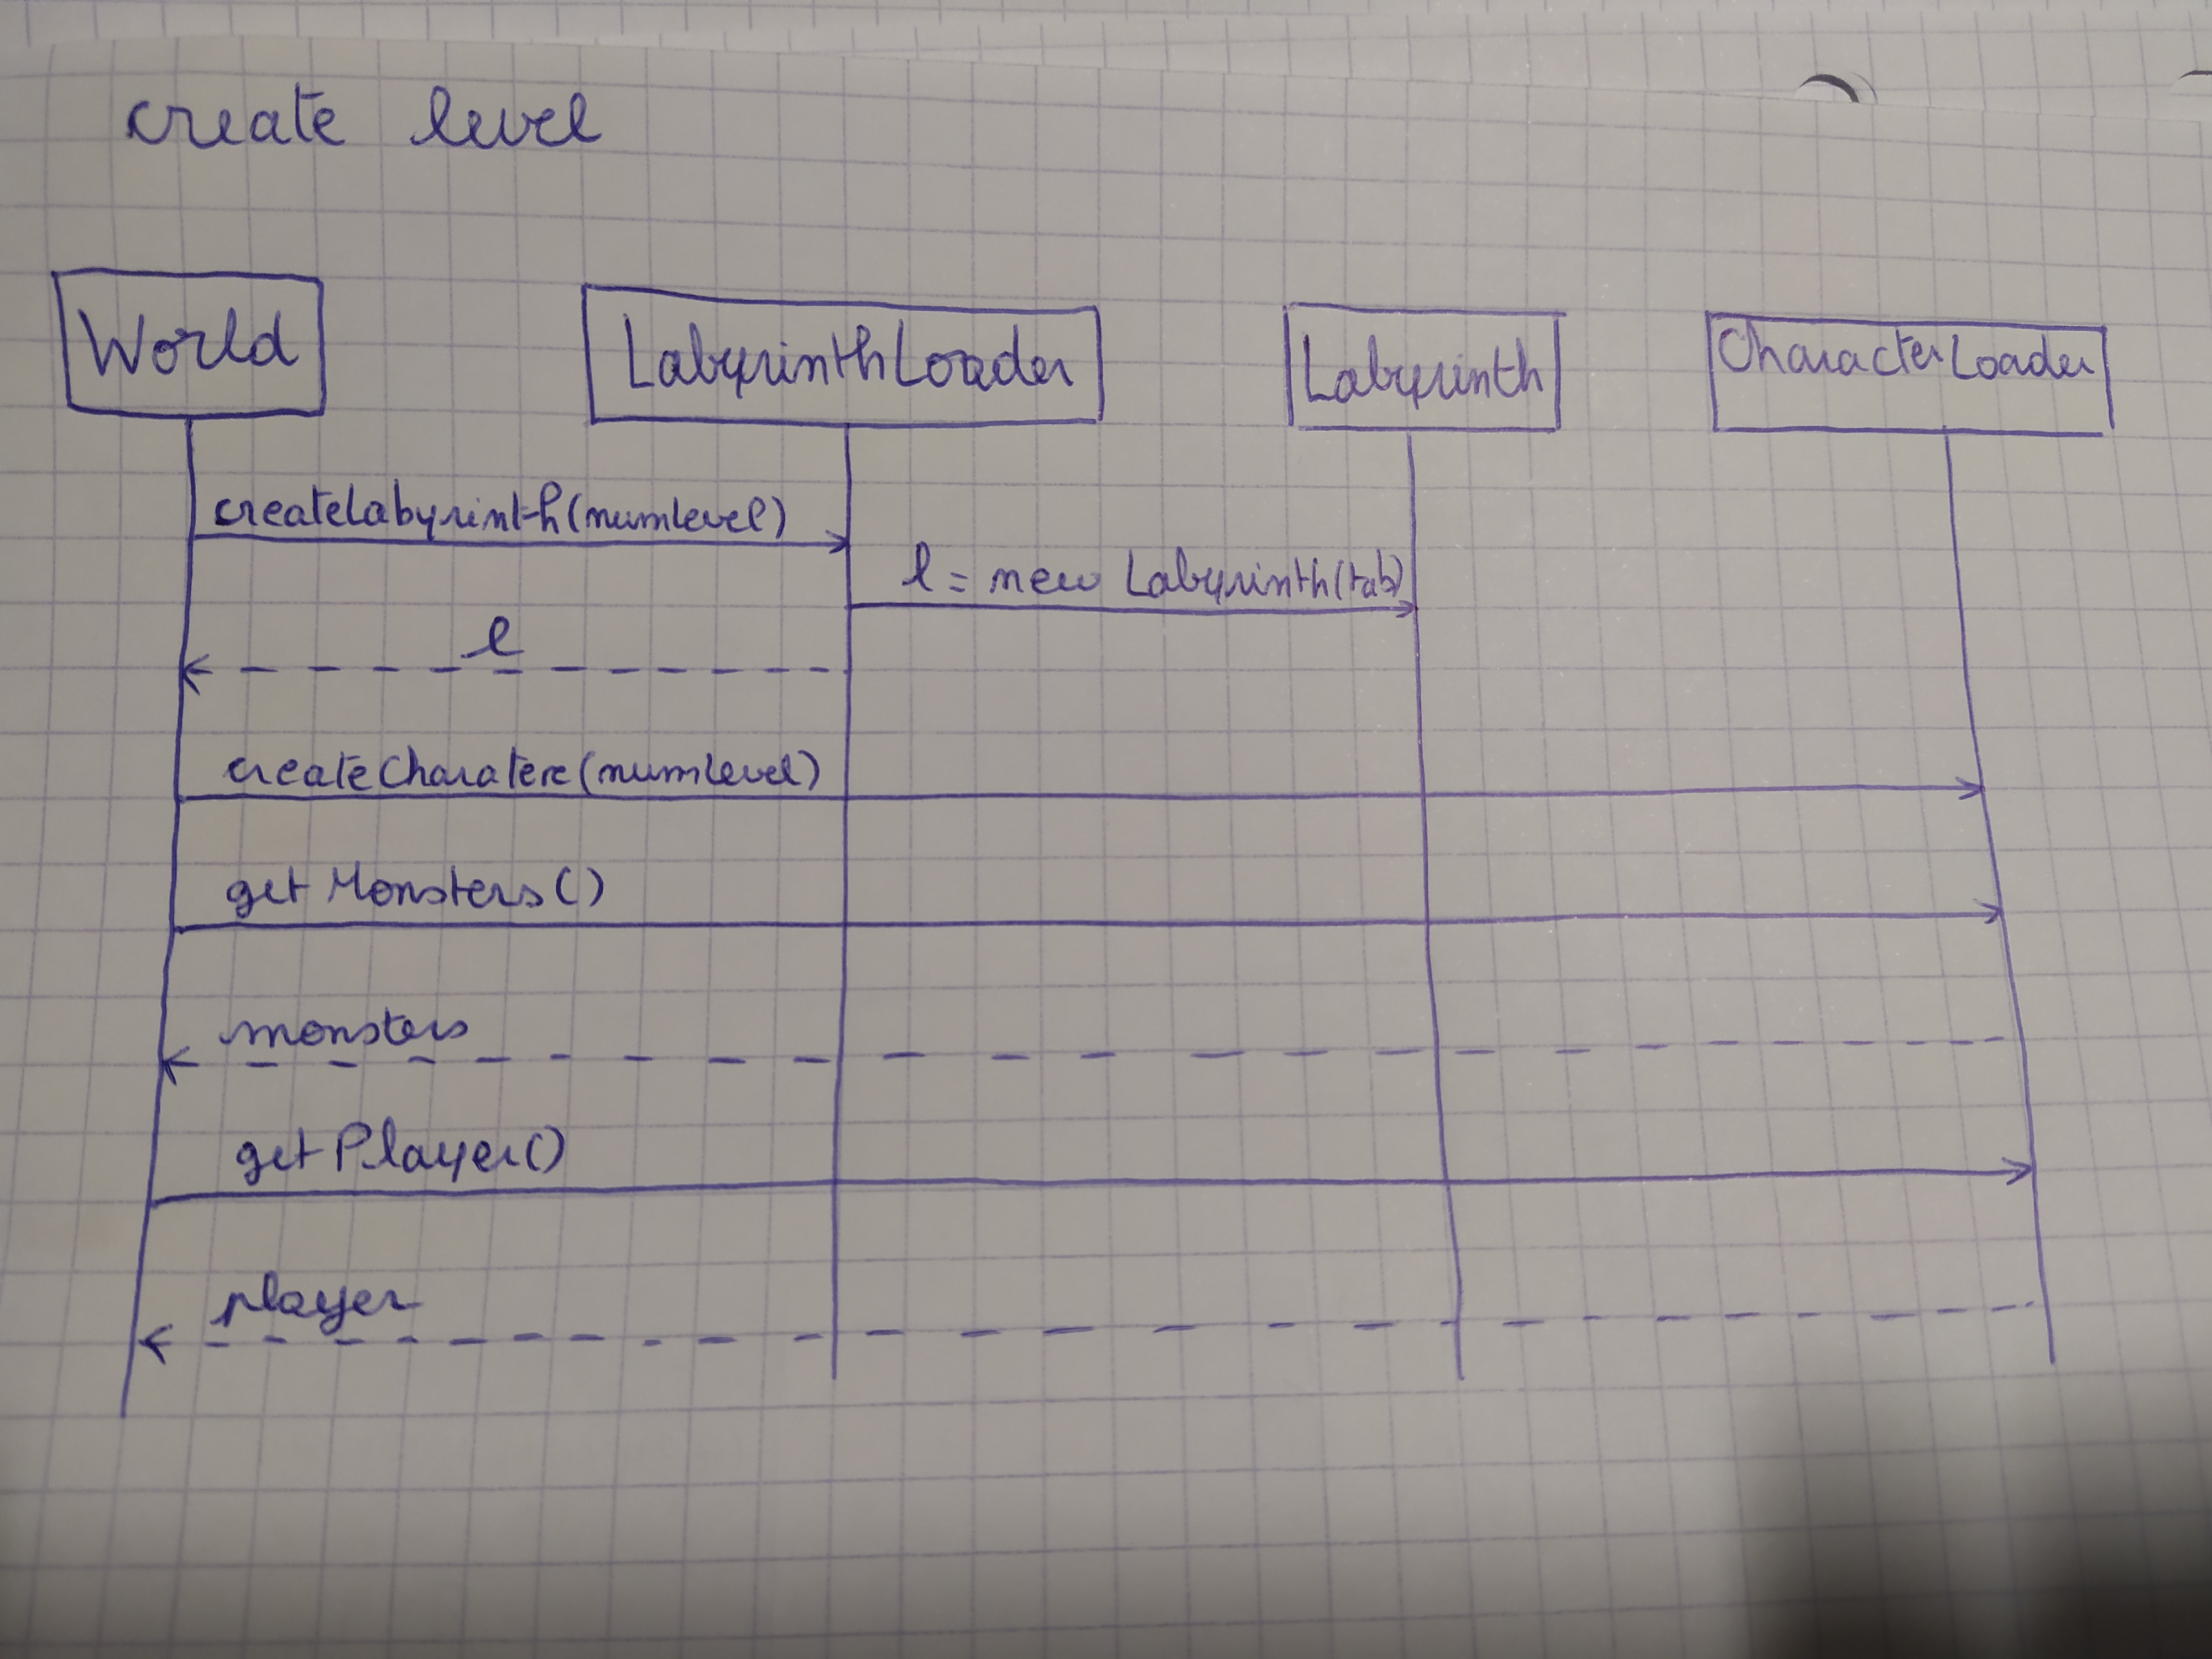 create level
World LabyrinthLoader Labyrinth CharacterLoader
createLabyrinth(numLevel)
l = new Labyrinth(tab)
l
createCharatere(numLevel)
getMonsters()
monsters
getPlayer()
player